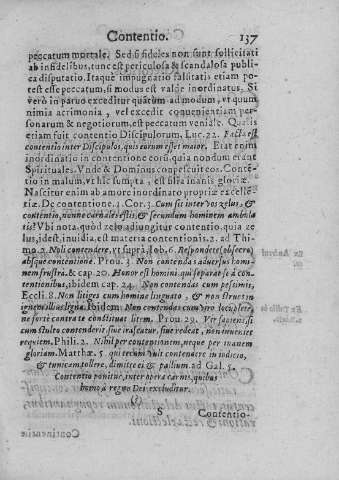 Contentio. 137
peccatum mortale. Sed si fideles non sunt sollicitati
ab infidelibus, tunc est periculosa & scandalosa publi-
ca disputatio. Itaque impugnatio falsitatis etiam po-
test esse peccatum, si modus est valde inordinatus. Si
verò in parvo exceditur quātum ad modum, vt quum
nimia acrimonia, vel excedit conuenientiam per-
sonarum & negotiorum, est peccatum veniale. Qualis
etiam fuit contentio Discipulorum, Luc. 22. Facta est
contentio inter Discipulos, quis eorum esset maior. Erat enim
inordinatio in contentione eorū, quia nondum erant
Spirituales. Vnde & Dominus compescuit eos. Conte-
tio in malum, vt hic sumpta, est filia inanis gloriæ.
Nascitur enim ab amore inordinato propriæ excellē-
tiæ. De contentione. 1. Cor. 3. Cum sit inter vos zelus, &
contentio, nonne carnales estis, & secundum hominem ambula
tis? Vbi nota, quòd zelo adiungitur contentio, quia ze
lus, id est, inuidia, est materia contentionis. 2. ad Thi-
mo. 2. Noli contendere, vt suprà, Iob. 6. Respondete (obsecro)
absque contentione. Prou. 3. Non contendas aduersus homi-
nem frustrà. & cap. 20. Honor est homini qui separat se à con-
tentionibus, ibidem cap. 24. Non contendas cum pessimis,
Eccli. 8. Non litiges cum homine linguato, & non strues in
ignem illius ligna. Ibidem. Non contendas cum viro locuplete,
ne forte contra te constituat litem. Prou. 29. Vir sapiens, si
cum stulto contenderit, siue irascatur, siue rideat, non inueniet
requiem. Phili. 2. Nihil per contentionem, neque per inanem
gloriam. Matthæ. 5. qui tecum vult contendere in iudicio,
& tunicam tollere, dimitte ei & pallium. ad Gal. 5.
Contentio ponitur, inter opera carnis, quibus
homo à regno Dei excluditur.
(?)
S Contentio-